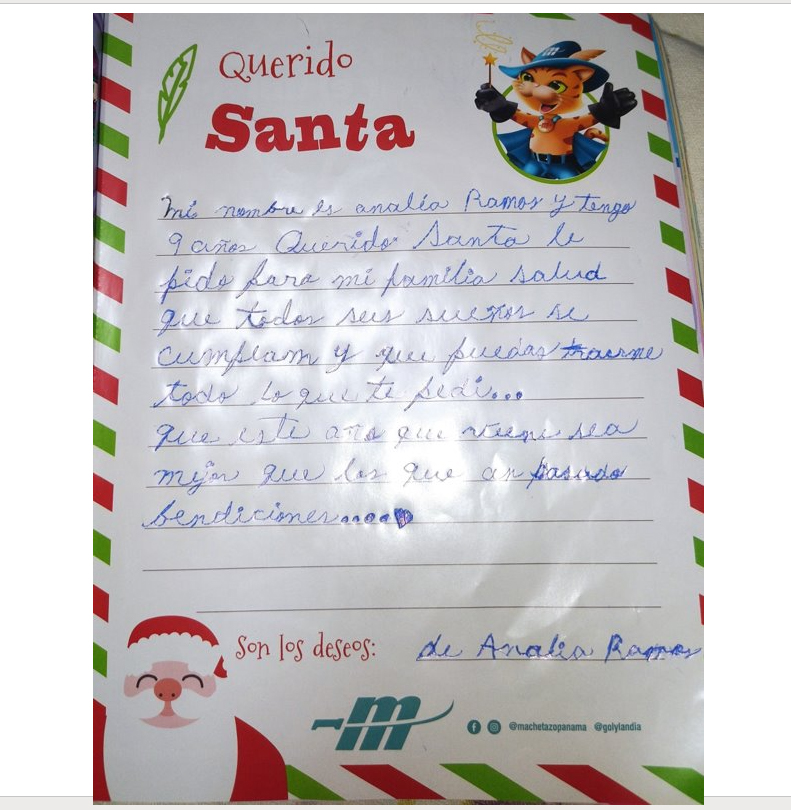 Querido
Santa
mi nombre es analía Ramos y tengo
9 años Querido Santa le
pido para mi familia salud
que todos sus sueños se
cumplam y que puedas traerme
todo lo que te pedi...
que este año que viene sea
mejor que los que an pasado
bendiciones....
Son los deseos: de Analía Ramos
m
@machetazopanama @golylandia